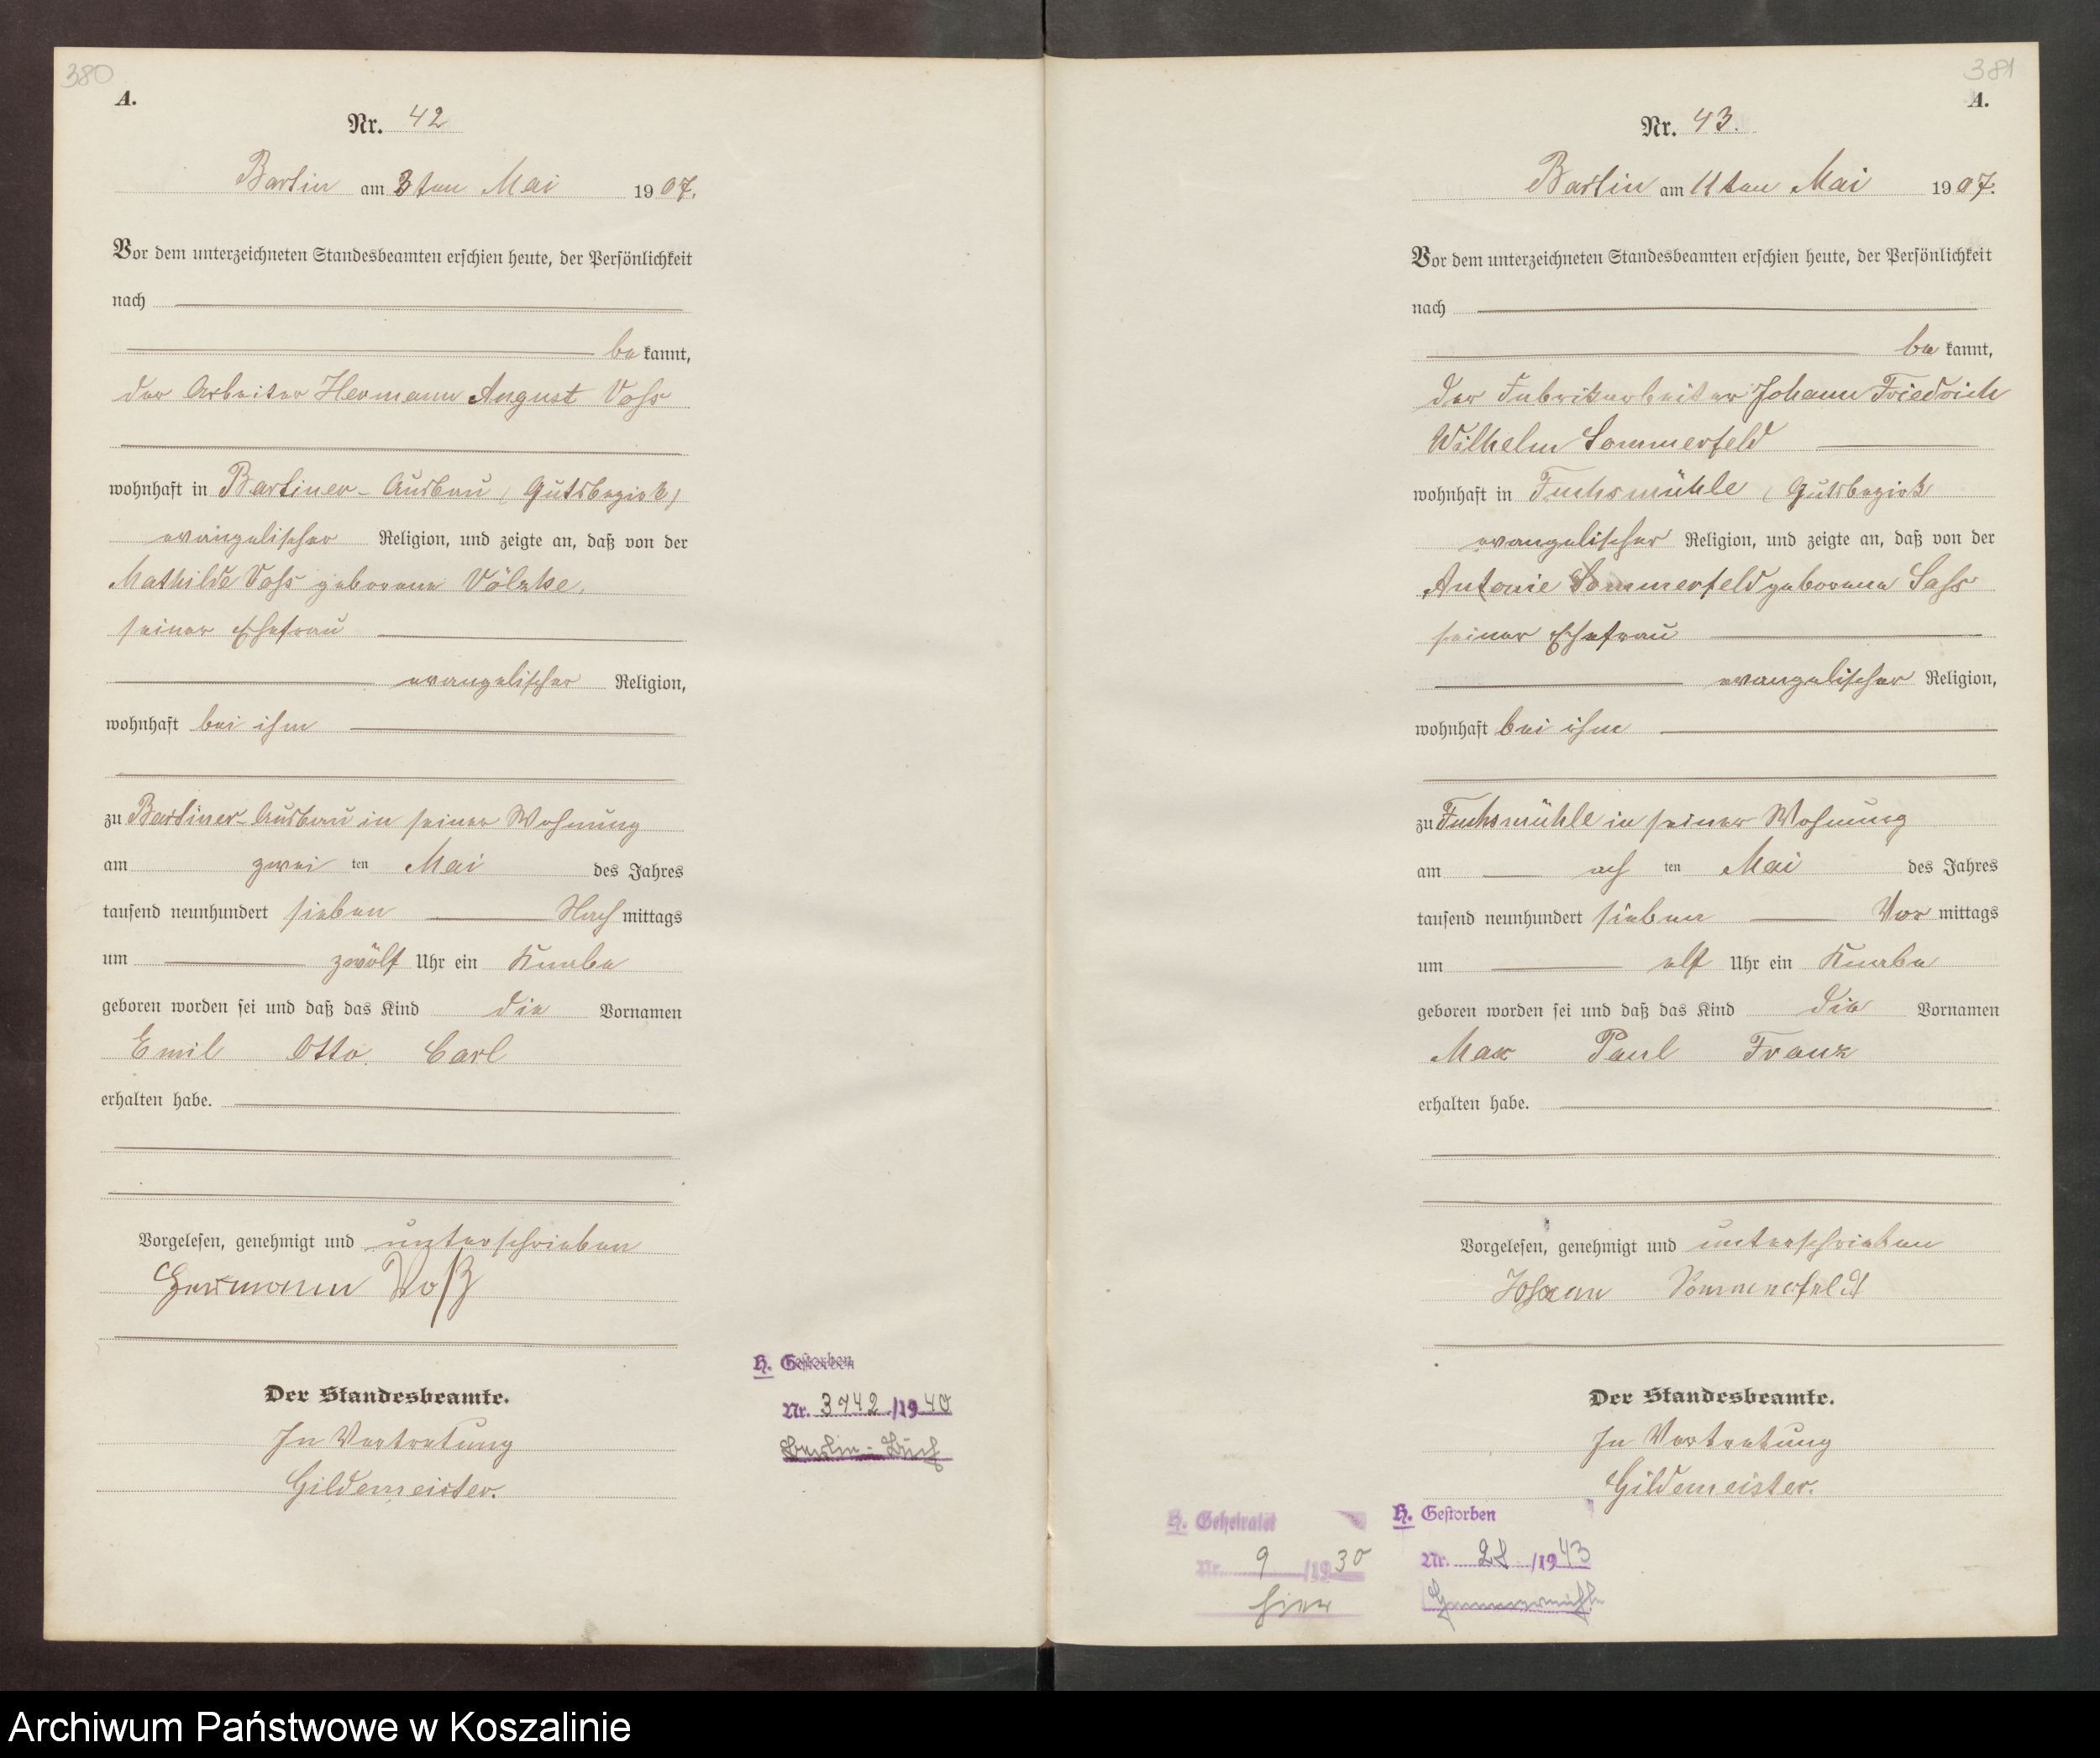 380
A.
Nr. 42
Bartin am 3ten Mai 1907.
Vor dem unterzeichneten Standesbeamten erschien heute, der Persönlichkeit
nach
bekannt,
der Arbeiter Hermann August Voss
wohnhaft in Bartiner-Ausbau (Gutsbezirk)
evangelischer Religion, und zeigte an, daß von der
Mathilde Voss geborene Völzke,
seiner Ehefrau
evangelischer Religion,
wohnhaft bei ihm
zu Bartiner-Ausbau in seiner Wohnung
am zweiten Mai des Jahres
tausend neunhundert sieben Nachmittags
um zwölf Uhr ein Knabe
geboren worden sei und daß das Kind die Vornamen
Emil Otto Carl
erhalten habe.
Vorgelesen, genehmigt und unterschrieben
Hermann Voß
Der Standesbeamte.
In Vertretung
Gildemeister.
H. Gestorben
Nr. 3742/1940
Berlin-Buch
381
A.
Nr. 43.
Bartin am 11ten Mai 1907.
Vor dem unterzeichneten Standesbeamten erschien heute, der Persönlichkeit
nach
bekannt,
der Fabrikarbeiter Johann Friedrich
Wilhelm Sommerfeld
wohnhaft in Fuchsmühle (Gutsbezirk
evangelischer Religion, und zeigte an, daß von der
Antonie Sommerfeld geborene Sass
seiner Ehefrau
evangelischer Religion,
wohnhaft bei ihm
zu Fuchsmühle in seiner Wohnung
am achten Mai des Jahres
tausend neunhundert sieben Vormittags
um elf Uhr ein Knabe
geboren worden sei und daß das Kind die Vornamen
Max Paul Franz
erhalten habe.
Vorgelesen, genehmigt und unterschrieben
Johann Sommerfeld
Der Standesbeamte.
In Vertretung
Gildemeister.
H. Geheiratet
Nr. 9/1930
hier
H. Gestorben
Nr. 28/1943
Archiwum Państwowe w Koszalinie